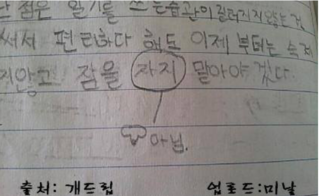 점은 일기를 쓰는 습관이 길러지지 않는 것
써서 편타하다 해도 이제 부터는 숙제
지않고 잠을 자지 말아야 겠다.
아님.
출처: 개드립 업로드:미날